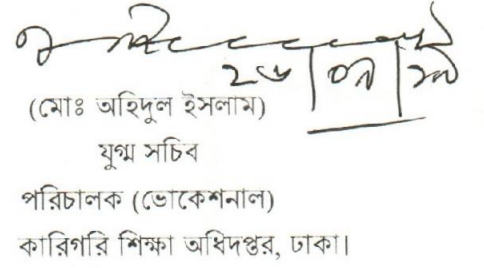 ২৬|০৯|১৯
(মোঃ অহিদুল ইসলাম)
যুগ্ম সচিব
পরিচালক (ভোকেশনাল)
কারিগরি শিক্ষা অধিদপ্তর, ঢাকা।